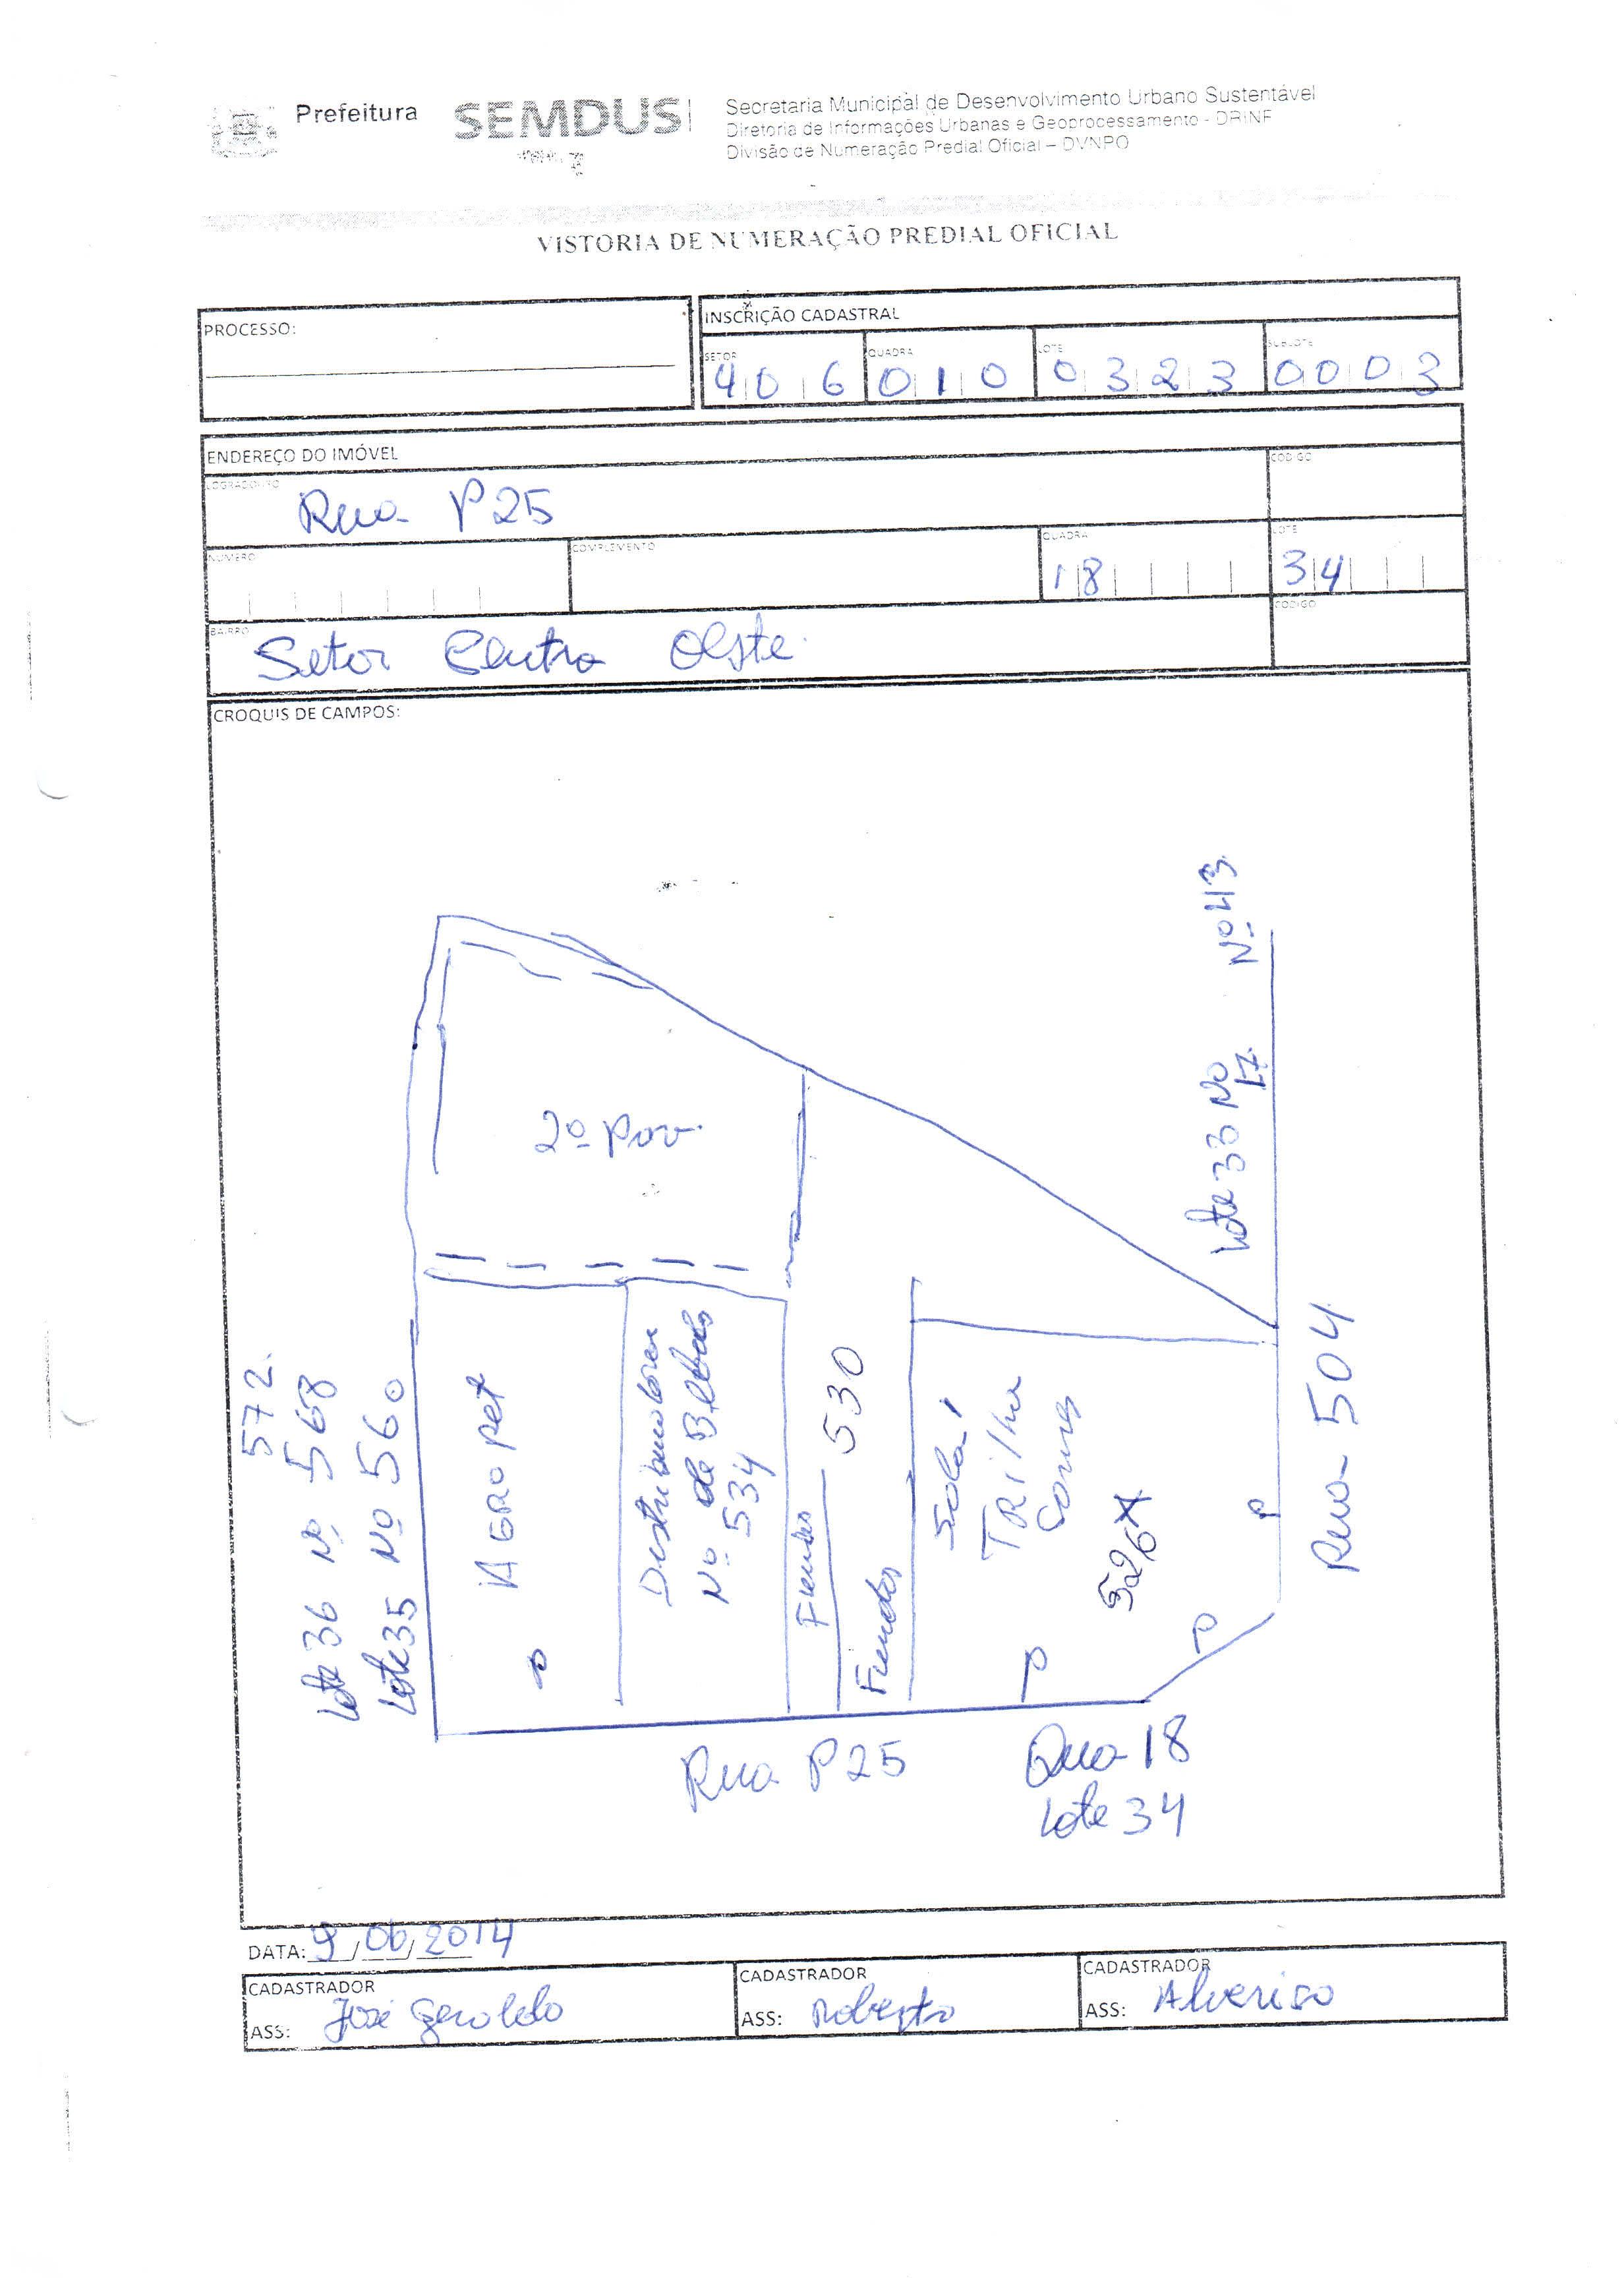 Prefeitura
SEMDUS
Secretaria Municipal de Desenvolvimento Urbano Sustentável
Diretoria de Informações Urbanas e Geoprocessamento - DRINF
Divisão de Numeração Predial Oficial – DVNPO
VISTORIA DE NUMERAÇÃO PREDIAL OFICIAL
PROCESSO:
INSCRIÇÃO CADASTRAL
SETOR QUADRA LOTE SUBLOTE
406 010 0323 0003
ENDEREÇO DO IMÓVEL
LOGRADOURO CODIGO
Rua P25
NUMERO COMPLEMENTO QUADRA LOTE
18 34
BAIRRO CODIGO
Setor Centro Oeste
CROQUIS DE CAMPOS:
572.
Lote 36 Nº 568
Lote 35 Nº 560
2º pav.
AGROpet
Distribuidora
de Bebidas
Nº 534
Fundos
530
Fundos
Sala 1
TRilha
526
Lote 33 Nº 17.
Nº 43.
Rua 504
Rua P25
Qua 18
Lote 34
DATA: 9/06/2014
CADASTRADOR
ASS: José Geraldo
CADASTRADOR
ASS: Roberto
CADASTRADOR
ASS: